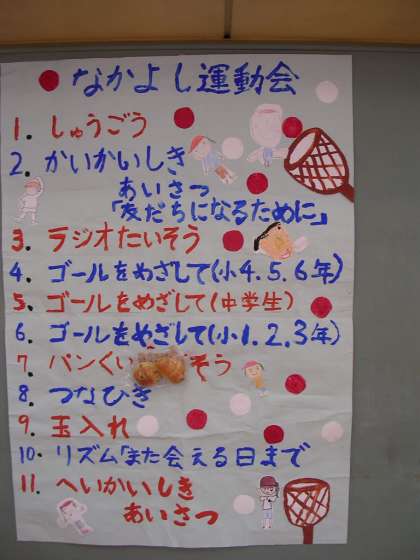 なかよし運動会
1. しゅうごう
2. かいかいしき
あいさつ
「友だちになるために」
3. ラジオたいそう
4. ゴールをめざして(小4.5.6年)
5. ゴールをめざして(中学生)
6. ゴールをめざして(小1.2.3年)
7. パンくい そう
8. つなひき
9. 玉入れ
10. リズム「また会える日まで
11. へいかいしき
あいさつ